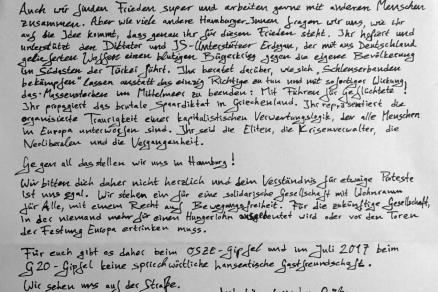 Auch wir finden Frieden super und arbeiten gerne mit anderen Menschen
zusammen. Aber wie viele andere Hamburger_Innen fragen wir uns, wie ihr
auf die Idee kommt, dass genau ihr für diesen Frieden steht. Ihr hofiert und
unterstützt den Diktator und IS-Unterstützer Erdogan, der mit aus Deutschland
gelieferten Waffen einen blutigen Bürgerkrieg gegen die eigene Bevölkerung
im Südosten der Türkei führt. Ihr beratet darüber, wie sich Schlepperbanden
bekämpfen lassen anstatt das einzig Richtige zu tun und mit sofortiger Wirkung
das Massensterben im Mittelmeer zu beenden: Mit Fähren für Geflüchtete!
Ihr propagiert das brutale Spardiktat in Griechenland. Ihr repräsentiert die
organisierte Traurigkeit einer kapitalistischen Verwertungslogik, der alle Menschen
in Europa unterworfen sind. Ihr seid die Eliten, die Krisenverwalter, die
Neoliberalen und die Vergangenheit.
Gegen all das stellen wir uns in Hamburg!
Wir bitten dich daher nicht herzlich und dein Verständnis für etwaige Proteste
ist uns egal. Wir stehen ein für eine solidarische Gesellschaft mit Wohnraum
für Alle, mit einem Recht auf Bewegungsfreiheit. Für die zukünftige Gesellschaft,
in der niemand mehr für einen Hungerlohn ausgebeutet wird oder vor den Toren
der Festung Europa ertrinken muss.
Für euch gibt es daher beim OSZE-Gipfel und im Juli 2017 beim
G20-Gipfel keine sprichwörtliche hanseatische Gastfreundschaft.
Wir sehen uns auf der Straße.